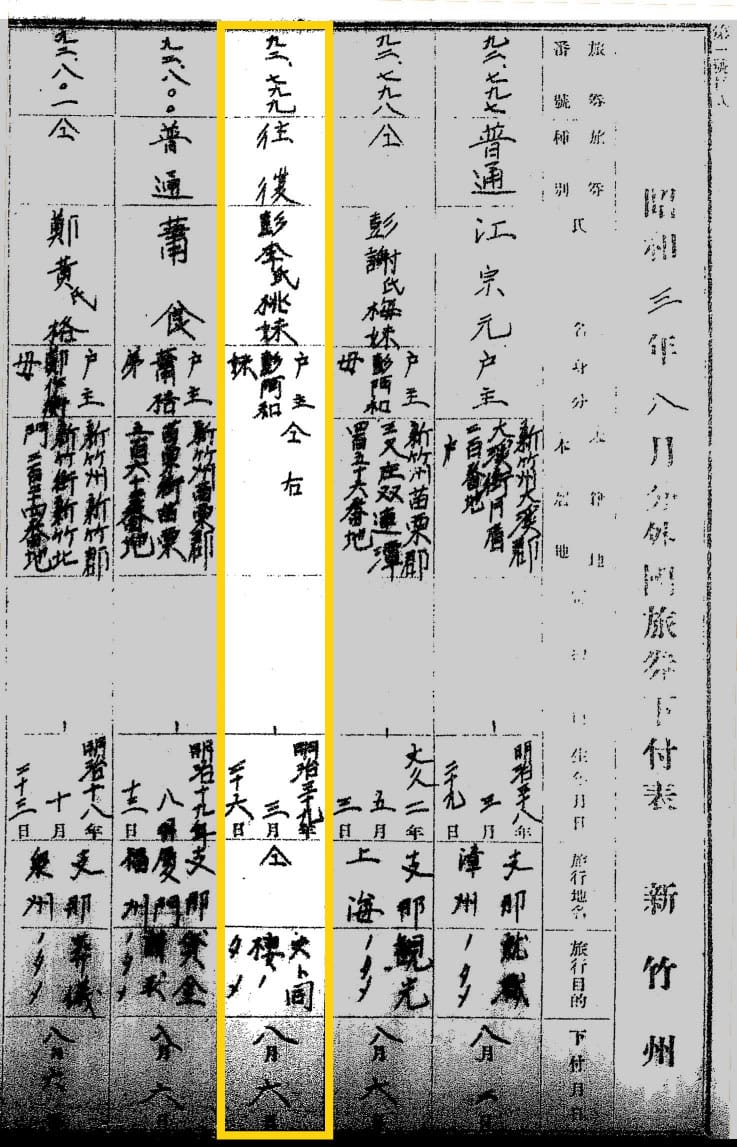 昭和三年八月分外国旅券下付表 新竹州
旅券番號
旅券種別
氏名
身分
本籍地
生年月日
旅行地名
旅行目的
下付月日
九二、七九七
普通
江宗元
戸主
新竹州大溪郡
大溪街
二百番地
明治三十八年
三月
二十九日
支那
漳州
就職
ノタメ
八月
九二、七九八
仝
彭謝氏梅妹
戸主
彭阿和
母
新竹州苗栗郡
三叉庄双連潭
四百五十六番地
五月
三日
支那
上海
観光
ノタメ
八月六日
九二、七九九
往復
彭李氏桃妹
戸主
彭阿和
妹
仝右
明治三十九年
三月
二十六日
仝
夫ト同
棲ノ
タメ
八月六日
九二、八〇〇
普通
蕭
戸主
蕭格
弟
新竹州苗栗郡
苗栗街苗栗
明治十九年
八月
十三日
支那
厦門
福州
ノタメ
八月六日
九二、八〇一
仝
鄭黄氏格
戸主
母
新竹州新竹郡
新竹街新竹北
門
明治十八年
十月
二十三日
支那
泉州
葬儀
ノタメ
八月六日